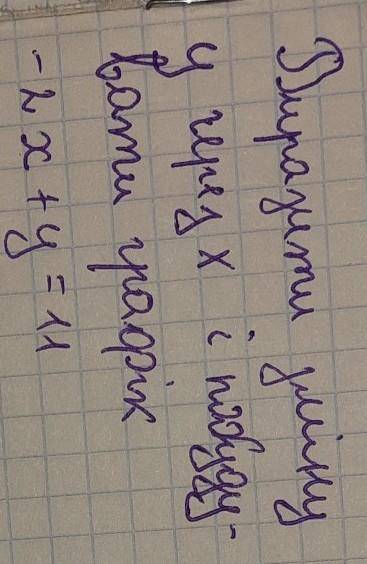 Виразити змінну
у через х і побуду-
вати графік
-2х + у = 11